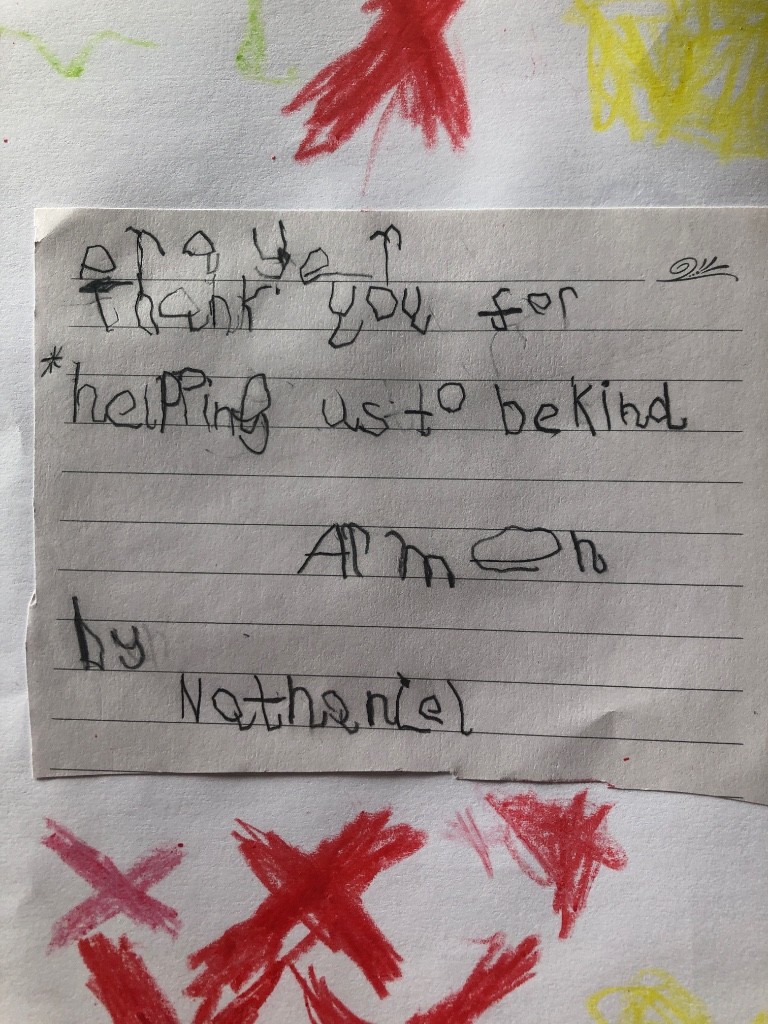 prayer
thank you for
* helpping us to be kind
Armon
by
Nathaniel